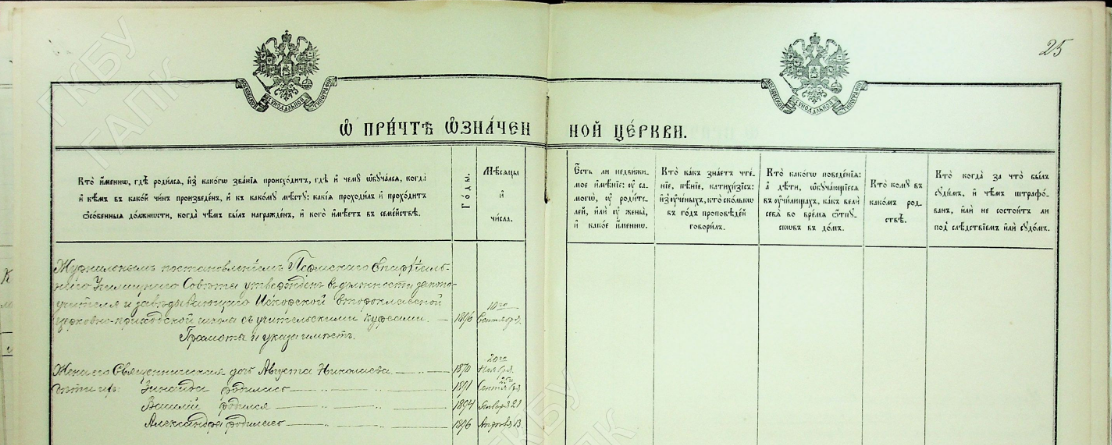 25
Ѡ ПРИ́ЧТѢ Ѡ҆ЗНА́ЧЕННОЙ ЦЕ́РКВИ.
Кто̀ и҆́менно, гдѣ̀ роди́лсѧ, и҆з̾ како́гѡ зва́нїѧ происхо́дитъ, гдѣ̀ и҆ чемꙋ̀ ѡ҆бꙋча́лсѧ, когда̀
и҆ кѣ́мъ въ како́й чи́нъ произведе́нъ, и҆ къ како́мꙋ мѣ́стꙋ: какі̑ѧ проходи́лъ и҆ прохо́дитъ
ѡ҆со́бенныѧ до́лжности, когда̀ чѣ́мъ бы́лъ награжде́нъ, и҆ кого̀ и҆мѣ́етъ въ семе́йствѣ.
Го́ды.
Мѣ́сѧцы
и҆
чи́сла.
Е҆́сть ли недви́жи-
мое и҆мѣ́нїе: ᲂу҆ са-
могѡ̀, ᲂу҆ роди́те-
лей, и҆лѝ ᲂу҆ жены̀,
и҆ како́е и҆́менно.
Кто̀ ка́къ зна́етъ чте́-
нїе, пѣ́нїе, катихи́зїсъ:
и҆з̾ ᲂу҆че́ныхъ, кто̀ ско́лькѡ
въ го́дъ проповѣ́дей
говори́лъ.
Кто̀ како́гѡ поведе́нїѧ:
а҆ дѣ́ти, ѡ҆бꙋча́ющїесѧ
въ ᲂу҆чи́лищахъ, ка́къ велѝ
себѐ во вре́мѧ ѿпꙋ-
сковъ въ до́мъ.
Кто̀ комꙋ̀ въ
како́мъ род-
ствѣ̀.
Кто̀ когда̀ за что̀ бы́лъ
сꙋди́мъ, и҆ чѣ́мъ штрафо́-
ванъ, и҆лѝ не состои́тъ ли
под̾ слѣ́дствїемъ и҆лѝ сꙋдо́мъ.
Журнальнымъ постановленіемъ Пермскаго Епархіаль-
наго Училищнаго Совѣта утвержденъ въ должности
учителя и завѣдывающаго второклассной
церковно-приходской школы съ учительскими курсами. — 1896 Сентября
Грамота и указъ имѣетъ.
Жена его Священническая дочь Августа Николаева — 1870 Ноября
Дети ихъ: Зинаида родилась — Сентября
Василій родился — 1894 Января
Александра родилась — 1896